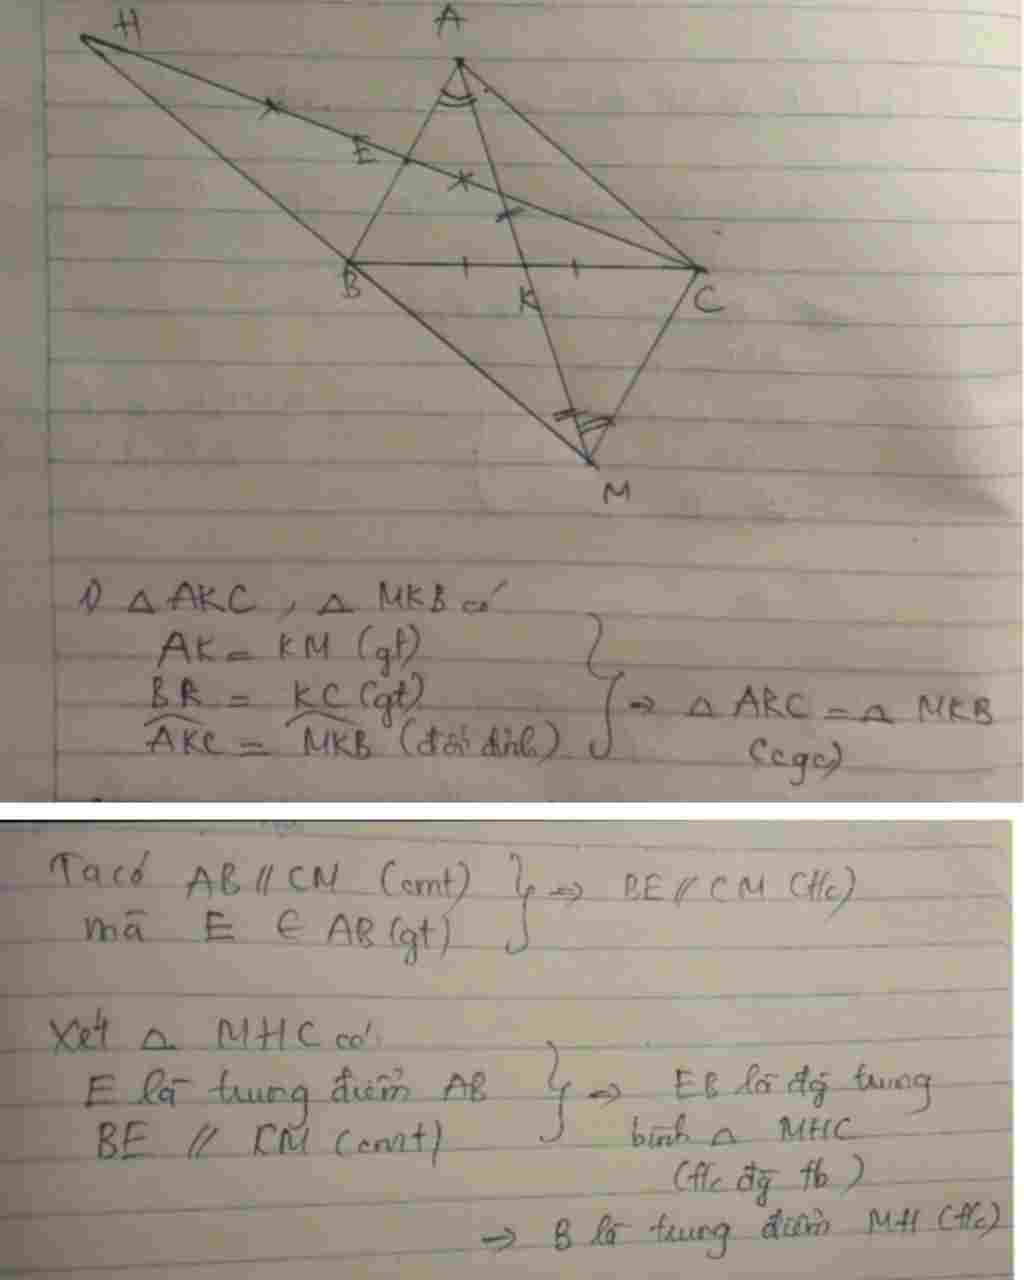 H
A
E
B
K
C
M
1) △ AKC , △ MKB có
AK = KM (gt)
BK = KC (gt)
AKC = MKB (đối đỉnh)
⇒ △ AKC = △ MKB
(cgc)
Ta có AB // CM (cmt)
mà E ∈ AB (gt)
⇒ BE // CM (t/c)
Xét △ MHC có
E là trung điểm AB
BE // CM (cmt)
⇒ EB là đg trung
bình △ MHC
(t/c đg tb)
→ B là trung điểm MH (t/c)